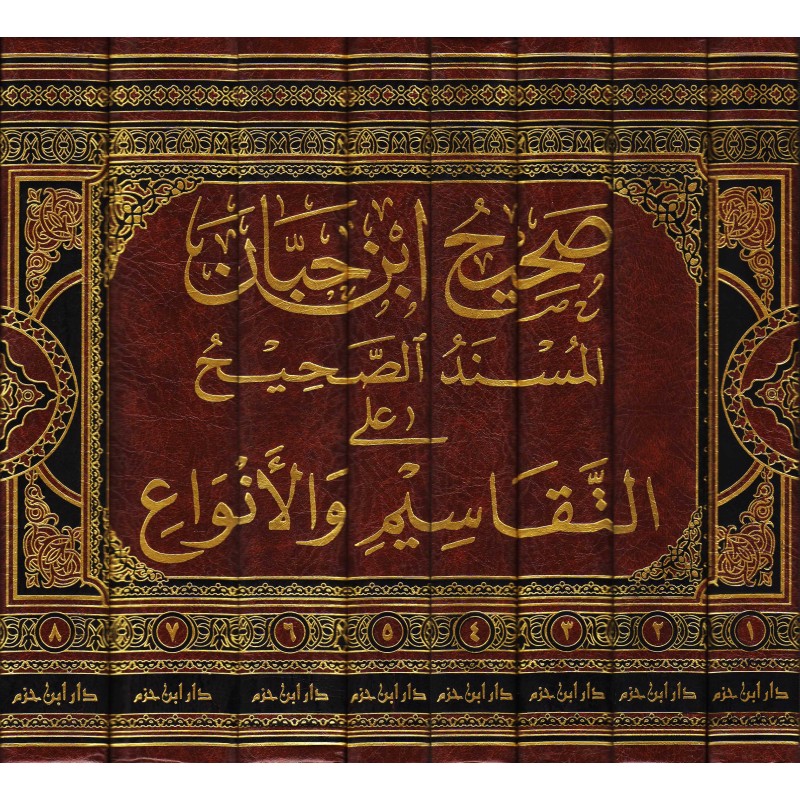 صَحِيحُ ابْنِ حِبَّانَ
المُسْنَدُ الصَّحِيْحُ
عَلى
التَّقَاسِيْمِ وَالأَنْوَاعِ
١ ٢ ٣ ٤ ٥ ٦ ٧ ٨
دار ابن حزم دار ابن حزم دار ابن حزم دار ابن حزم دار ابن حزم دار ابن حزم دار ابن حزم دار ابن حزم